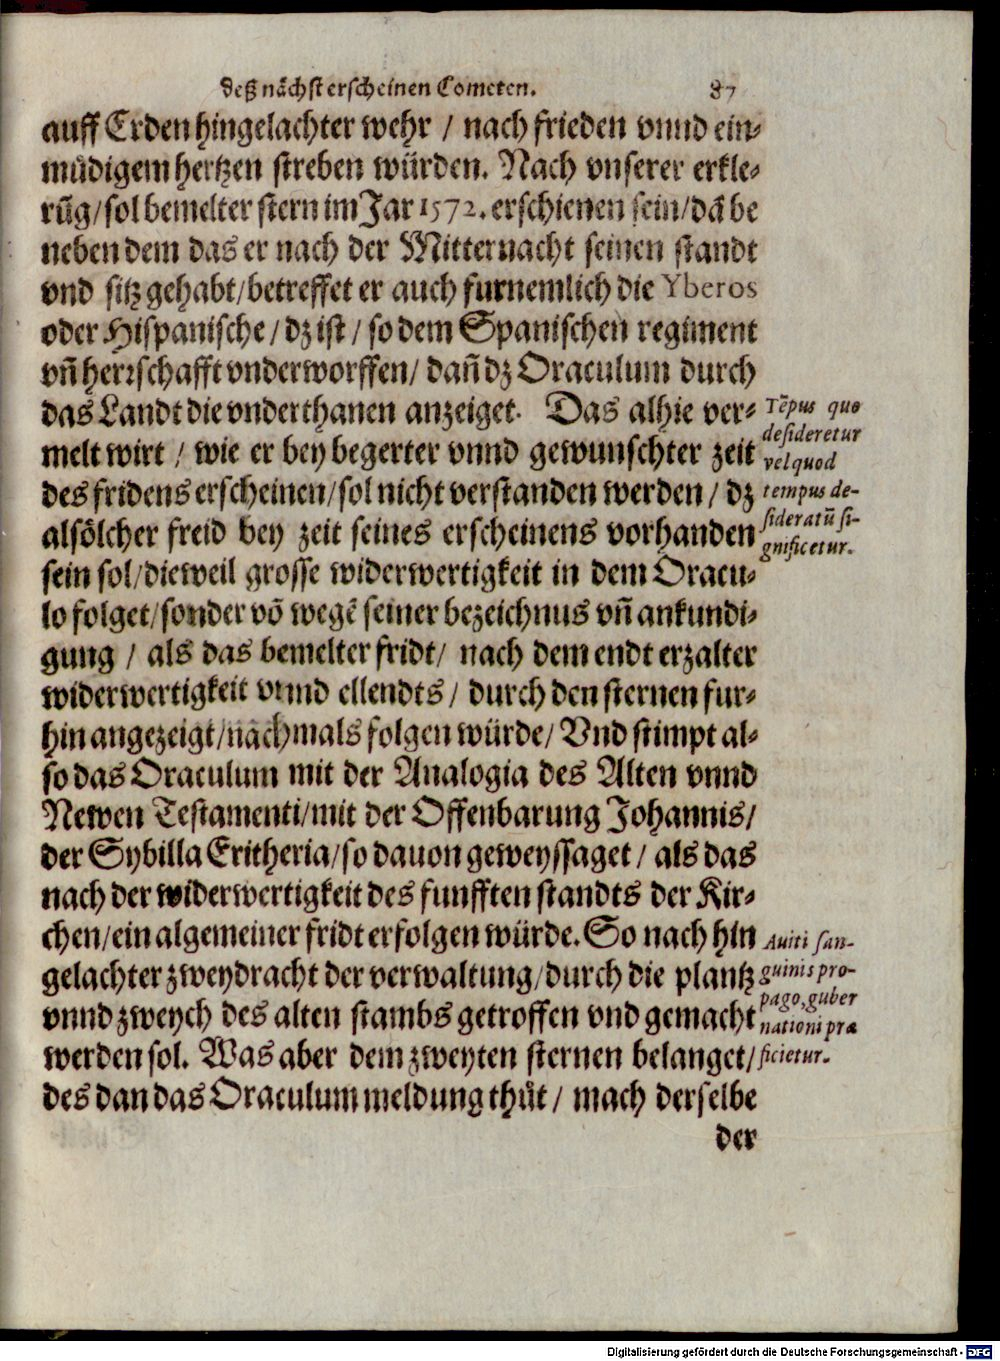 deß nächst erscheinen Cometen. 87
auff Erden hingelachter wehr / nach frieden vnnd ein⸗
müdigem hertzen streben würden. Nach vnserer erkle⸗
rũg / sol bemelter stern im Jar 1572. erschienen sein / dã be
neben dem das er nach der Mitternacht seinen standt
vnd sitz gehabt / betreffet er auch furnemlich die Yberos
oder Hispanische / dz ist / so dem Spanischen regiment
vñ herrschafft vnderworffen / dañ dz Oraculum durch
das Landt die vnderthanen anzeiget. Das alhie ver⸗
melt wirt / wie er bey begerter vnnd gewunschter zeit
des fridens erscheinen / sol nicht verstanden werden / dz
alsölcher freid bey zeit seines erscheinens vorhanden
sein sol / dieweil grosse widerwertigkeit in dem Oracu⸗
lo folget / sonder võ wegẽ seiner bezeichnus vñ ankundi⸗
gung / als das bemelter fridt / nach dem endt erzalter
widerwertigkeit vnnd ellendts / durch den sternen fur⸗
hin angezeigt / nachmals folgen würde / Vnd stimpt al⸗
so das Oraculum mit der Analogia des Alten vnnd
Newen Testamenti / mit der Offenbarung Johannis /
der Sybilla Eritheria / so dauon geweyssaget / als das
nach der widerwertigkeit des funfften standts der Kir⸗
chen / ein algemeiner fridt erfolgen würde. So nach hin
gelachter zweydracht der verwaltung / durch die plantz
vnnd zweych des alten stambs getroffen vnd gemacht
werden sol. Was aber dem zweyten sternen belanget /
des dan das Oraculum meldung thůt / mach derselbe
der
Tẽpus quo
desideretur
vel quod
tempus de-
sideratũ si-
gnificetur.
Auiti san-
guinis pro-
pago, guber
nationi præ
ficietur.
Digitalisierung gefördert durch die Deutsche Forschungsgemeinschaft - DFG